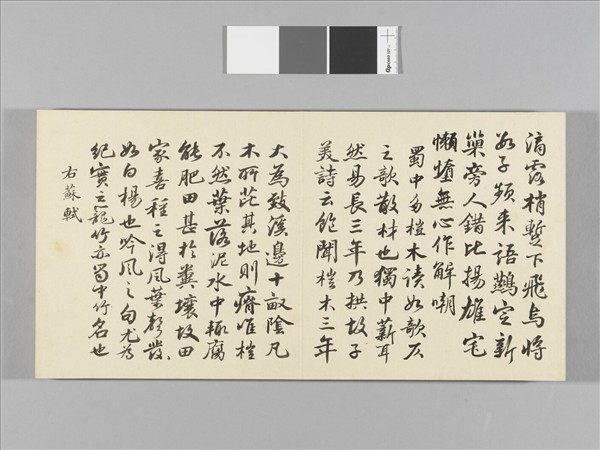 滴露梢暫下飛烏將
數子頻来語鷰定新
巢旁人錯比揚雄宅
懶墯無心作解嘲
蜀中多榿木讀如欹仄
之欹散材也獨中薪耳
然易長三年乃拱故子
美詩云飽聞榿木三年
大為致溪邊十畝陰凡
木所芘其地則瘠唯榿
不然葉落泥水中輒腐
能肥田甚於糞壤故田
家喜種之得風葉聲發發
如白楊也吟風之句尤為
紀實云籠竹亦蜀中竹名也
右蘇軾